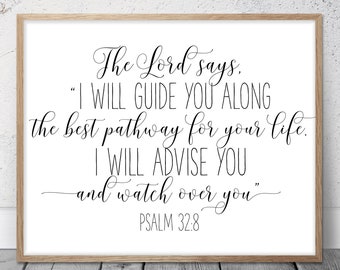 The Lord says,
"I WILL GUIDE YOU ALONG
the best pathway for your life.
I WILL ADVISE YOU
and watch over you"
PSALM 32:8